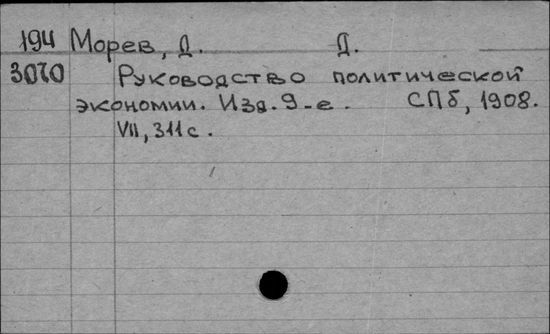 194 Морев, Д. Д.
3070 Руководство политической
экономии. Изд. 9-е. СПб, 1908.
VII, 311 с.